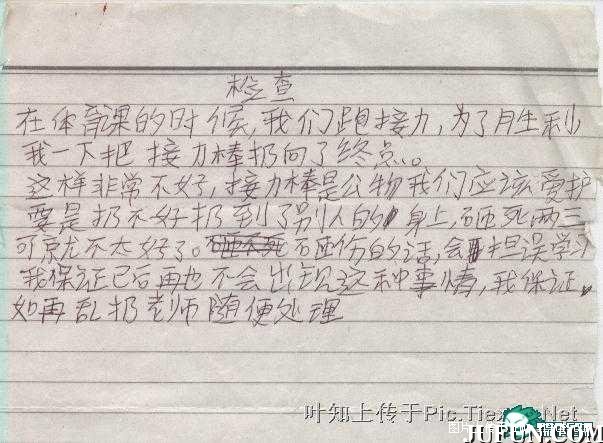 检查
在体育课的时候,我们跑接力,为了胜利
我一下把接力棒扔向了终点。
这样非常不好,接力棒是公物我们应该爱护
要是扔不好扔到了别人的身上,砸死两三
可就不太好了。砸伤的话,会担误学习
我保证已后再也不会出现这种事情,我保证
如再乱扔老师随便处理
叶知上传于Pic.Tiex .Net
JUPUN.COM